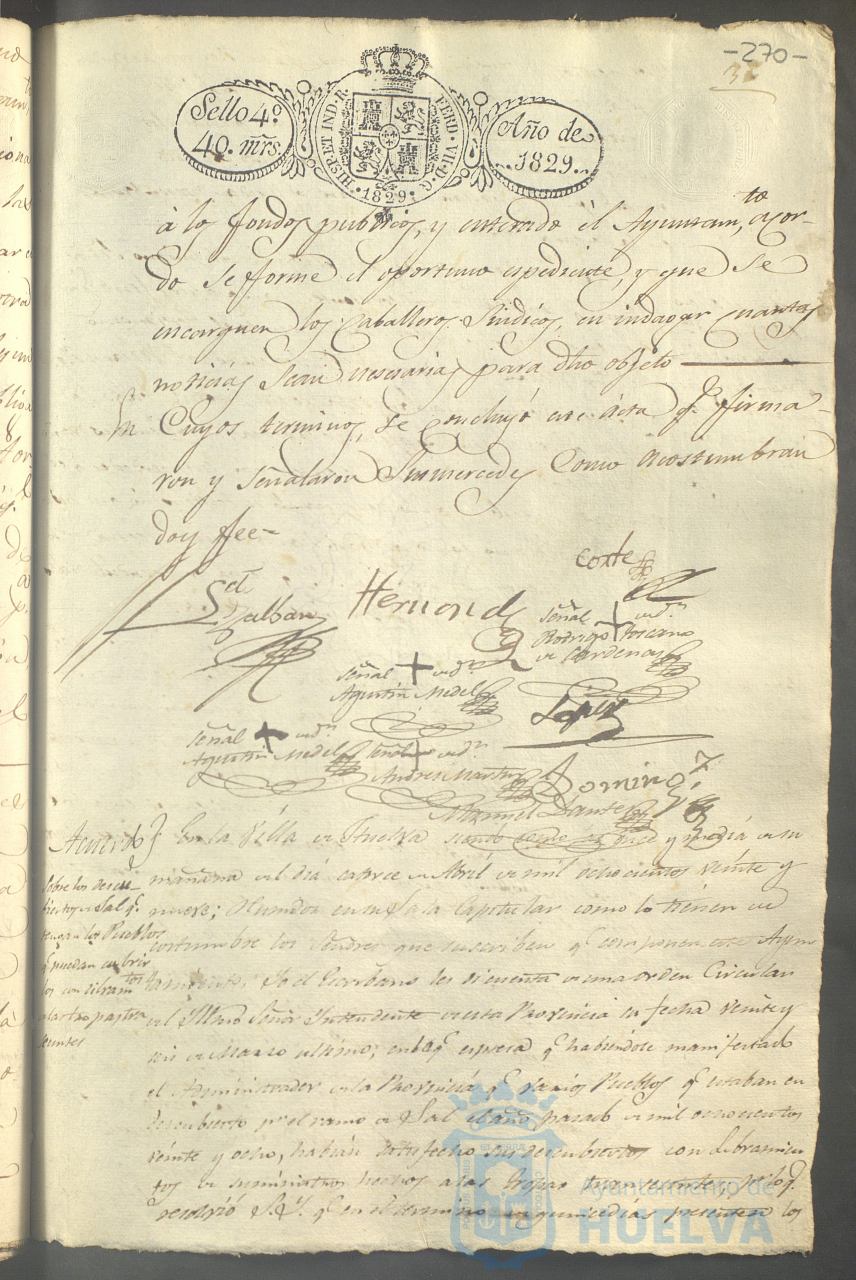 -270-
Sello 4º
40. mrs.
HISP. ET IND. R.
FERD. VII. D. G.
1829
Año de
1829.
à los fondos publicos, y enterado él Ayuntam.to, acor-
do se fforme el oportuno espediente, y que se
encarguen los Caballeros Sindicos, en indagar cuantas
noticias sean nesesarias para dho objeto
En Cuyos terminos, se concluyó este acta q.e firma-
ron y señalaron Susmercedes como acostumbran
doy fee-
Galban
Hernond
Corte
señal + de
Rodrigo Toscano
de Cardenas
señal +
Agustin Medel
Lopez
señal +
Agustin Medel
señal +
Andres Martin
Domingz
Manuel Dante
Acuerdo
Sobre los descu-
biertos de Sal q.
tengan los Pueblos
q. puedan cubrir
los con libramtos
En la Villa de Huelva siendo como y media de su
mañana del dia catorce de Abril de mil ochocientos veinte y
nueve; reunidos en su Sala Capitular como lo tienen de
costumbre los Señores que suscriben q. componen este Ayun
tamiento; Yo el Escribano les dí cuenta de una orden Circular
del Illmo Señor Yntendente de esta Provincia su fecha veinte y
seis de Marzo ultimo; en la q. espresa q. habiendole manifestado
el Administrador de la Provincia q. varios Pueblos q. estaban en
descubierto por el ramo de Sal el año pasado de mil ochocientos
veinte y ocho, habian satisfecho sus descubiertos con libramien
tos de suministros hechos a las tropas transeuntes, por lo q.
resolvió S.Y. q. en el termino de quince dias presenten los
Ayuntamiento de
HUELVA